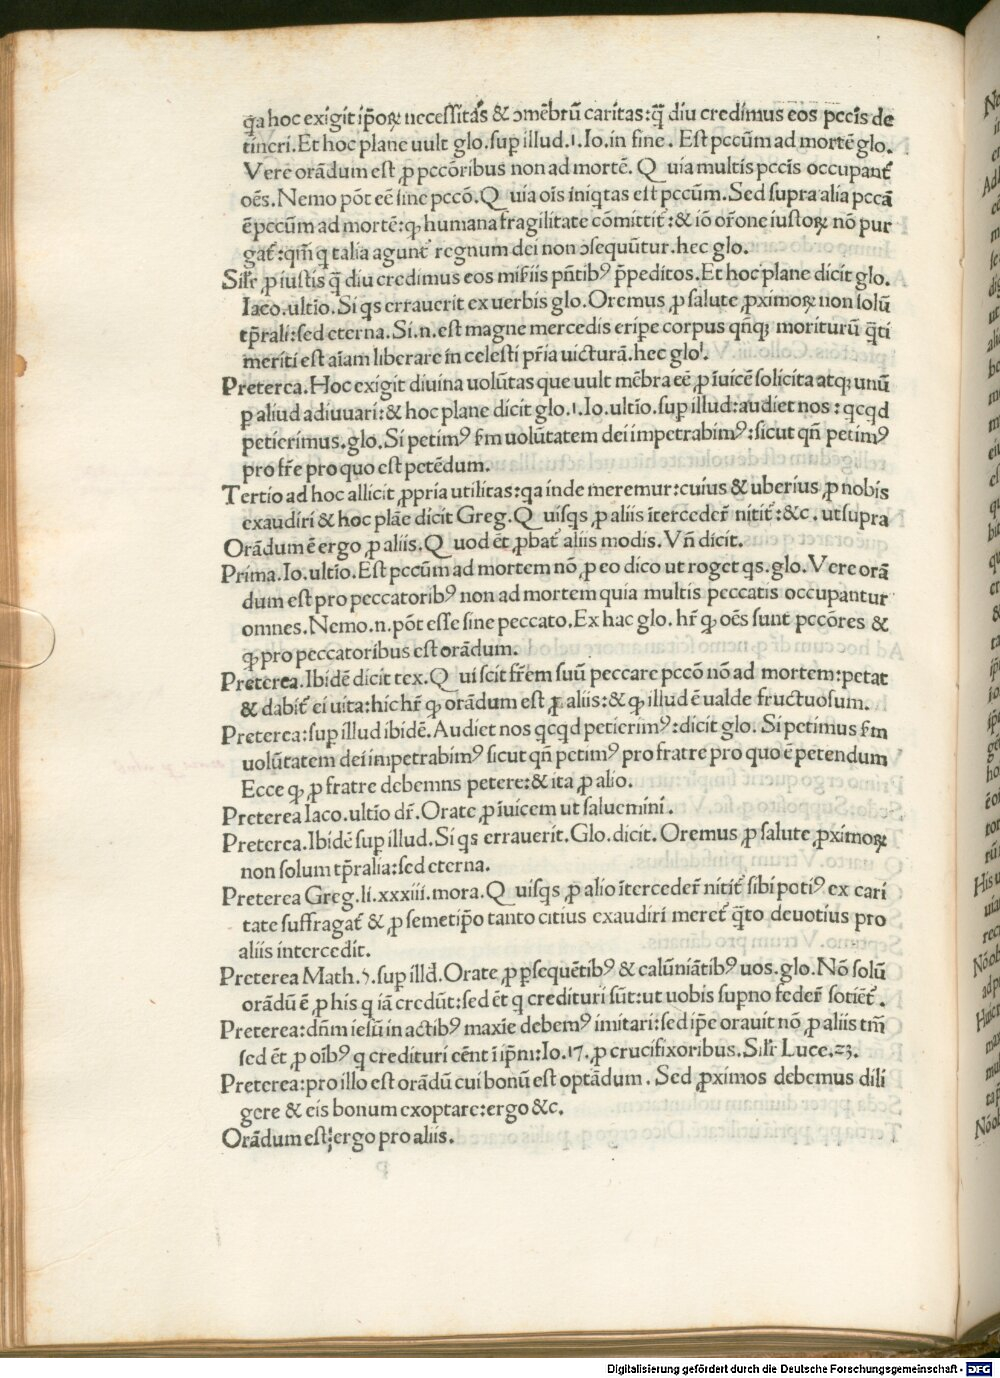 qa hoc exigit ip̄oꝝ necessitas & ɔmēbrū caritas:q̄ diu credimus eos pccis de
tineri.Et hoc plane uult glo.suꝑ illud.1.Io.in fine. Est pccūm ad mortē glo.
Vere orādum est ꝓ pccōribus non ad mortē. Q uia multis pccis occupant̄
oēs.Nemo pōt eē sine pccō.Q uia ois iniqtas est pccūm.Sed supra alia pccā
ē pccūm ad mortē:ꝙ humana fragilitate cōmittit̄:& iō or̄one iustoꝝ nō pur
gat̄:qm̄ q talia agunt̄ regnum dei non ɔsequūtur.hec glo.
Silr̄ ꝓ iustis q̄ diu credimus eos mis̄iis pn̄tibꝰ p̄peditos.Et hoc plane dicit glo.
Iaco.ultīo.Si qs errauerit ex uerbis glo.Oremus ꝓ salute ꝓximoꝝ non solū
tp̄rali:sed eterna.Si.n.est magne mercedis eripe corpus qn̄qꝫ moriturū q̄ti
meriti est aīam liberare in celesti pr̄ia uicturā.hec glo.
Preterea.Hoc exigit diuina uolūtas que uult mēbra eē ꝓ iuicē solicita atqꝫ unū
ꝑ aliud adiuuari:& hoc plane dicit glo.1.Io.ultīo.suꝑ illud:audiet nos:qcqd
petierimus.glo.Si petimꝰ s̄m uolūtatem dei impetrabimꝰ:sicut qn̄ petimꝰ
pro fr̄e pro quo est petēdum.
Tertio ad hoc allicit ꝓpria utilitas:qa inde meremur:cuius & uberius ꝓ nobis
exaudiri & hoc plāe dicit Greg.Q uisqs ꝓ aliis īterceder̄ nitit̄:&c.utsupra
Orādum ē ergo ꝓ aliis.Q uod ēt ꝓbat̄ aliis modis.Vn̄ dicit.
Prima.Io.ultīo.Est pccūm ad mortem nō ꝓ eo dico ut roget qs.glo.Vere orā
dum est pro peccatoribꝰ non ad mortem quia multis peccatis occupantur
omnes.Nemo.n.pōt esse sine peccato.Ex hac glo.hr̄ ꝙ oēs sunt pccōres &
ꝙ pro peccatoribus est orādum.
Preterea.Ibidē dicit tex.Q ui scit fr̄em suū peccare pccō nō ad mortem:petat
& dabit̄ ei uita:hic hr̄ ꝙ orādum est ꝓ aliis:& ꝙ illud ē ualde fructuosum.
Preterea:suꝑ illud ibidē.Audiet nos qcqd petierimꝰ:dicit glo. Si petimus s̄m
uolūtatem dei impetrabimꝰ sicut qn̄ petimꝰ pro fratre pro quo ē petendum
Ecce ꝙ ꝓ fratre debemus petere:& ita ꝓ alio.
Preterea Iaco.ultīo dr̄.Orate ꝓ iuicem ut saluemini.
Preterea.Ibidē suꝑ illud.Si qs errauerit.Glo.dicit. Oremus ꝓ salute ꝓximoꝝ
non solum tp̄ralia:sed eterna.
Preterea Greg.li.xxxiii.mora.Q uisqs ꝓ alio īterceder̄ nitit̄ sibi potiꝰ ex cari
tate suffragat̄ & ꝓ semetip̄o tanto citius exaudiri meret̄ q̄to deuotius pro
aliis intercedit.
Preterea Math.5.suꝑ illd̄.Orate ꝓ ꝑsequētibꝰ & calūniātibꝰ uos.glo.Nō solū
orādū ē ꝓ his q iā credūt:sed ēt q credituri sūt:ut uobis suꝑno feder̄ sotiēt̄.
Preterea:dn̄m iesū in actibꝰ maxīe debemꝰ imitari:sed ip̄e orauit nō ꝓ aliis tm̄
sed ēt ꝓ oībꝰ q credituri eēnt ī ip̄m:Io.17.ꝓ crucifixoribus.Silr̄ Luce.23.
Preterea:pro illo est orādū cui bonū est optādum. Sed ꝓximos debemus dili
gere & eis bonum exoptare:ergo &c.
Orādum est:ergo pro aliis.
Digitalisierung gefördert durch die Deutsche Forschungsgemeinschaft - DFG